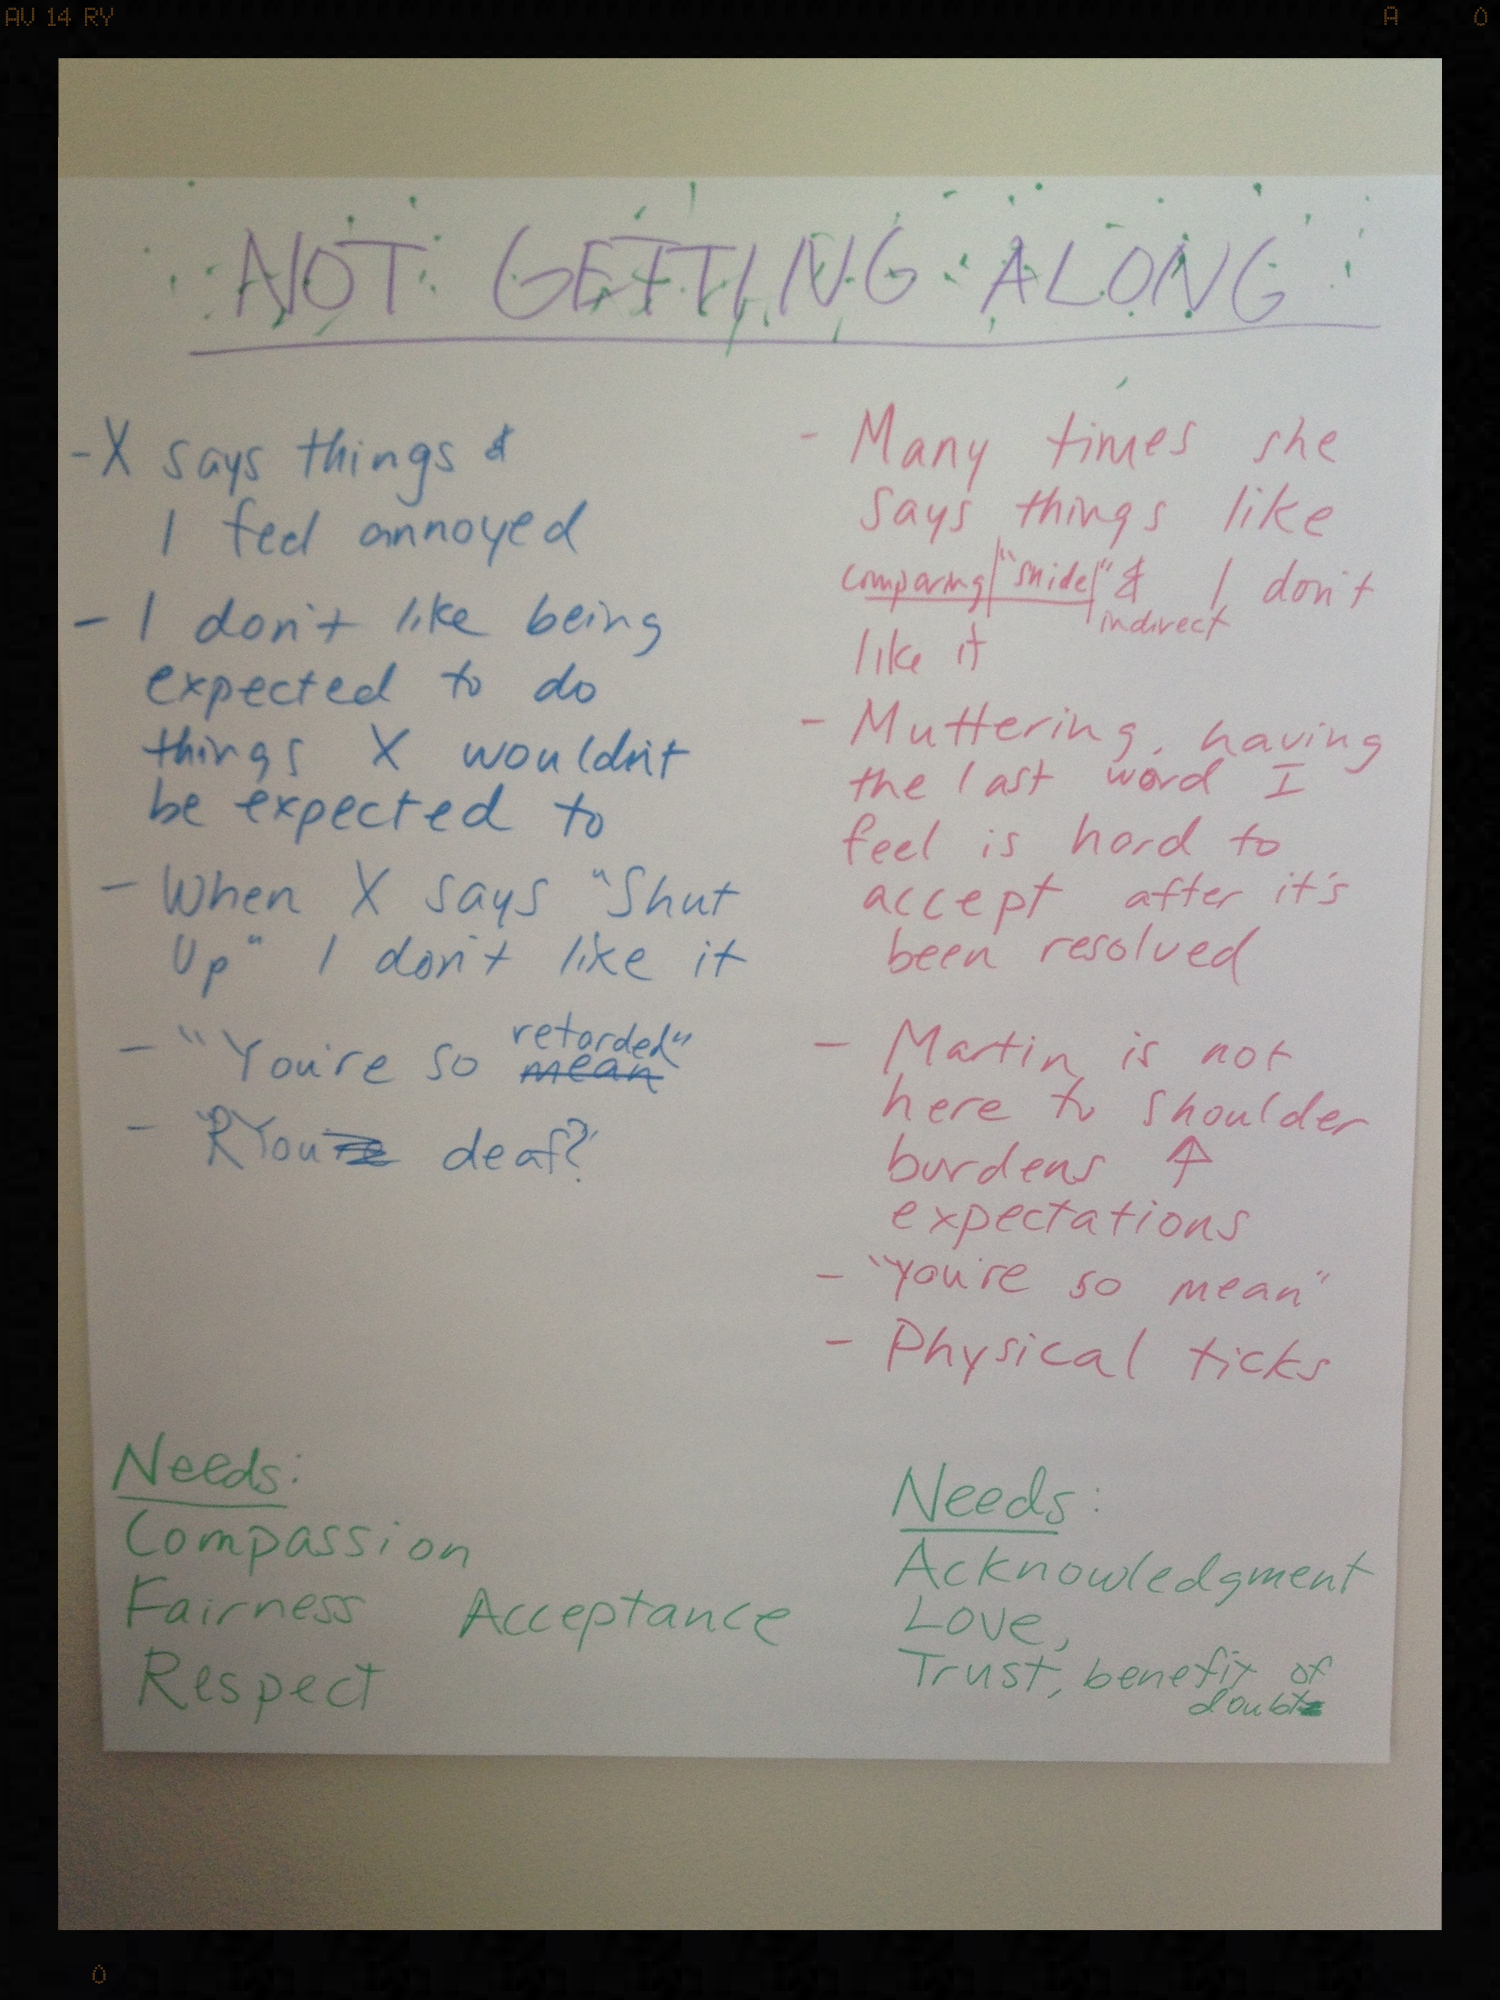 AV 14 RY
A 0
NOT GETTING ALONG
-X says things &
I feel annoyed
- I don't like being
expected to do
things X wouldn't
be expected to
- When X says "Shut
Up" I don't like it
- "You're so retarded"
mean
- "R You deaf?"
Needs:
Compassion
Fairness Acceptance
Respect
- Many times she
says things like
comparing/"snide"/ & I don't
indirect
like it
- Muttering, having
the last word I
feel is hard to
accept after it's
been resolved
- Martin is not
here to shoulder
burdens ↑
expectations
- "You're so mean"
- Physical ticks
Needs:
Acknowledgment
Love,
Trust, benefit of
doubt
0